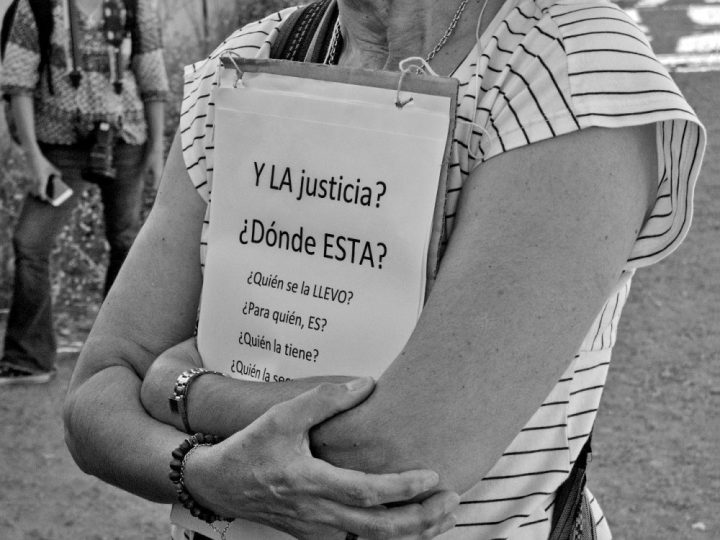 Y LA justicia?
¿Dónde ESTA?
¿Quién se la LLEVO?
¿Para quién, ES?
¿Quién la tiene?
¿Quién la